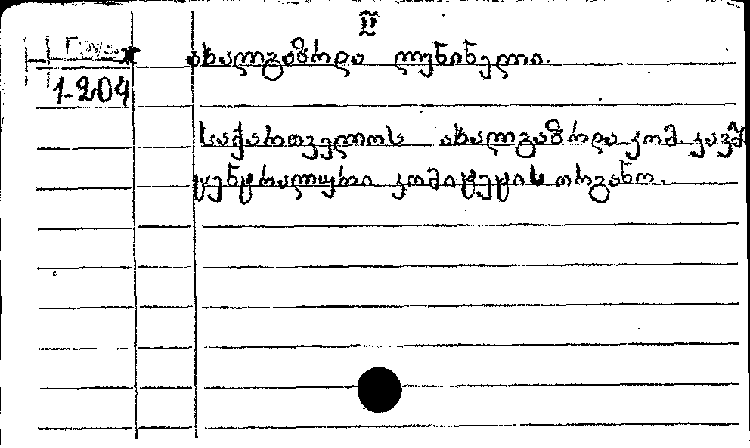 ახალგაზრდა ლენინელი.
1-204
საქართველოს ახალგაზრდა კომ. კავშ
ცენტრალური კომიტეტის ორგანო.